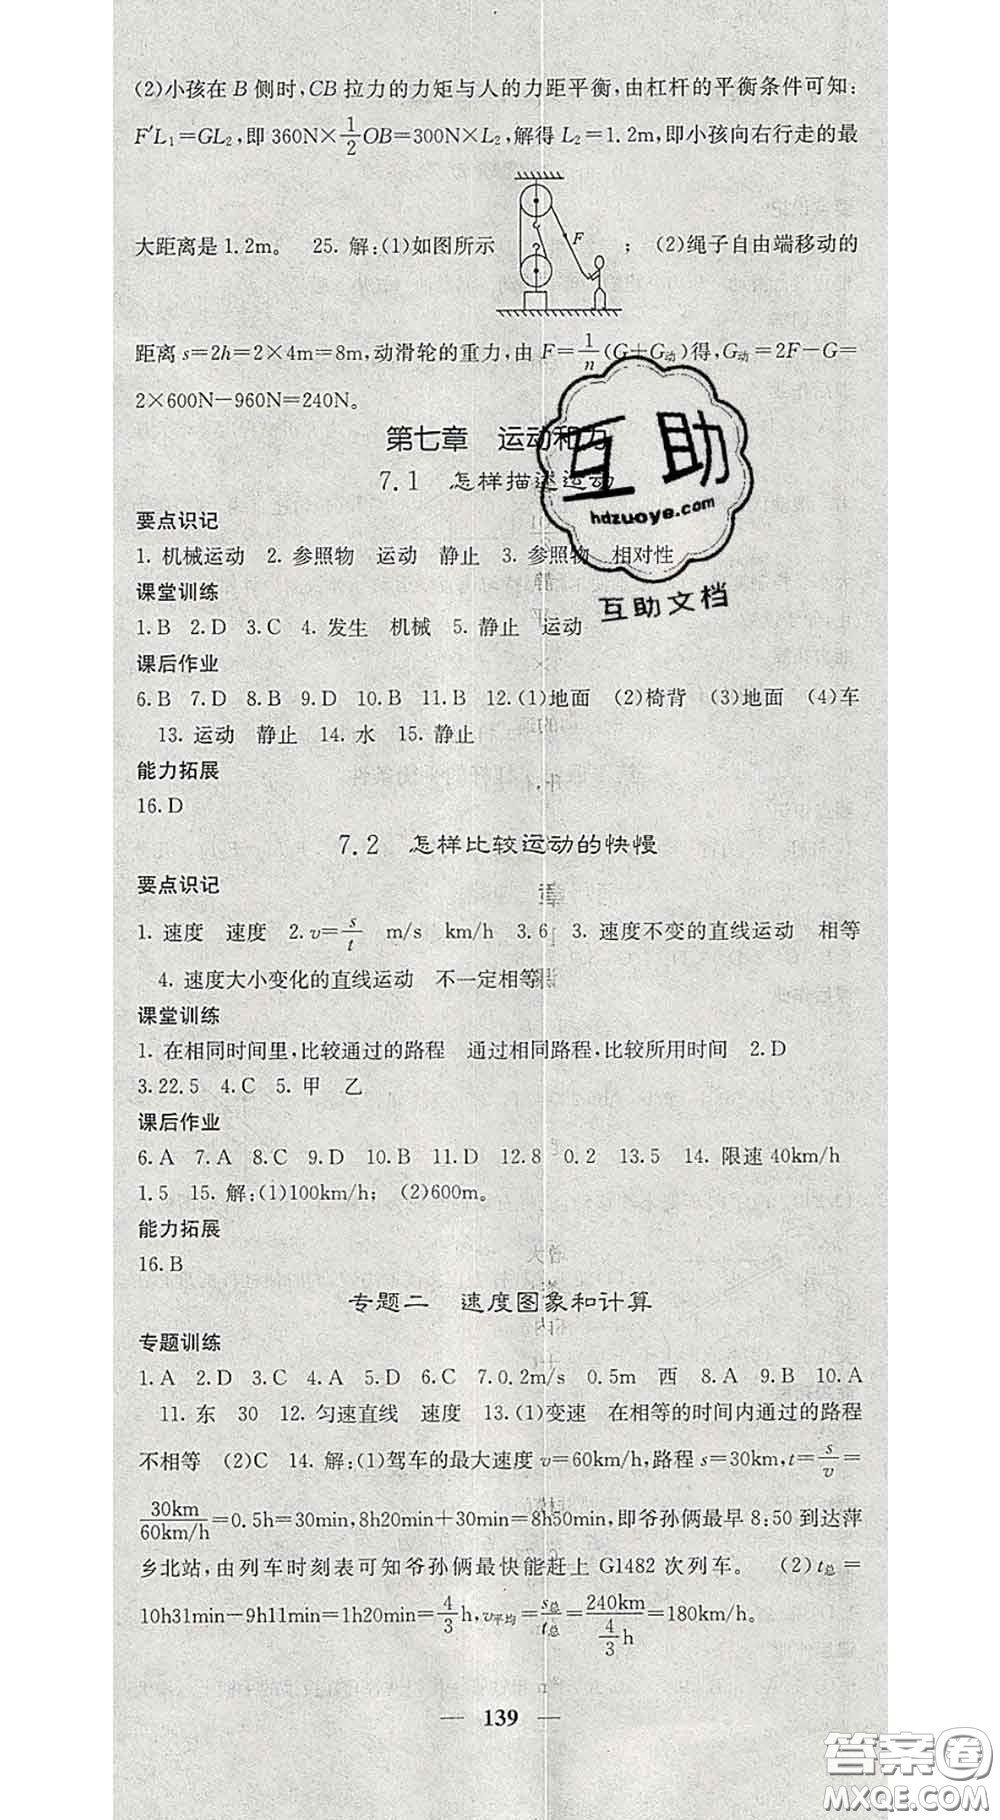 (2)小孩在 B 侧时,CB 拉力的力矩与人的力距平衡,由杠杆的平衡条件可知:
F′L₁=GL₂,即 360N×1/2OB=300N×L₂,解得 L₂=1.2m,即小孩向右行走的最
大距离是 1.2m。 25. 解:(1)如图所示 F ; (2)绳子自由端移动的
距离 s=2h=2×4m=8m,动滑轮的重力,由 F=1/n(G+G动)得,G动=2F-G=
2×600N-960N=240N。
第七章 运动和力
7.1 怎样描述运动
要点识记
1. 机械运动 2. 参照物 运动 静止 3. 参照物 相对性
课堂训练
1.B 2.D 3.C 4. 发生 机械 5. 静止 运动
课后作业
6.B 7.D 8.B 9.D 10.B 11.B 12.(1)地面 (2)椅背 (3)地面 (4)车
13. 运动 静止 14. 水 15. 静止
能力拓展
16.D
7.2 怎样比较运动的快慢
要点识记
1. 速度 速度 2.v=s/t m/s km/h 3.6 3. 速度不变的直线运动 相等
4. 速度大小变化的直线运动 不一定相等
课堂训练
1. 在相同时间里,比较通过的路程 通过相同路程,比较所用时间 2.D
3.22.5 4.C 5. 甲 乙
课后作业
6.A 7.A 8.C 9.D 10.B 11.D 12.8 0.2 13.5 14. 限速 40km/h
1.5 15. 解:(1)100km/h; (2)600m。
能力拓展
16.B
专题二 速度图象和计算
专题训练
1.A 2.D 3.C 4.A 5.D 6.C 7.0.2m/s 0.5m 西 8.A 9.B 10.A
11. 东 30 12. 匀速直线 速度 13.(1)变速 在相等的时间内通过的路程
不相等 (2)C 14. 解:(1)驾车的最大速度 v=60km/h,路程 s=30km,t=s/v=
30km/60km/h=0.5h=30min,8h20min+30min=8h50min,即爷孙俩最早 8:50 到达萍
乡北站,由列车时刻表可知爷孙俩最快能赶上 G1482 次列车。 (2)t总=
10h31min-9h11min=1h20min=4/3h,v平均=s总/t总=240km/(4/3h)=180km/h。
139
互助
hdzuoye.com
互助文档
答案圈
MXQE.COM